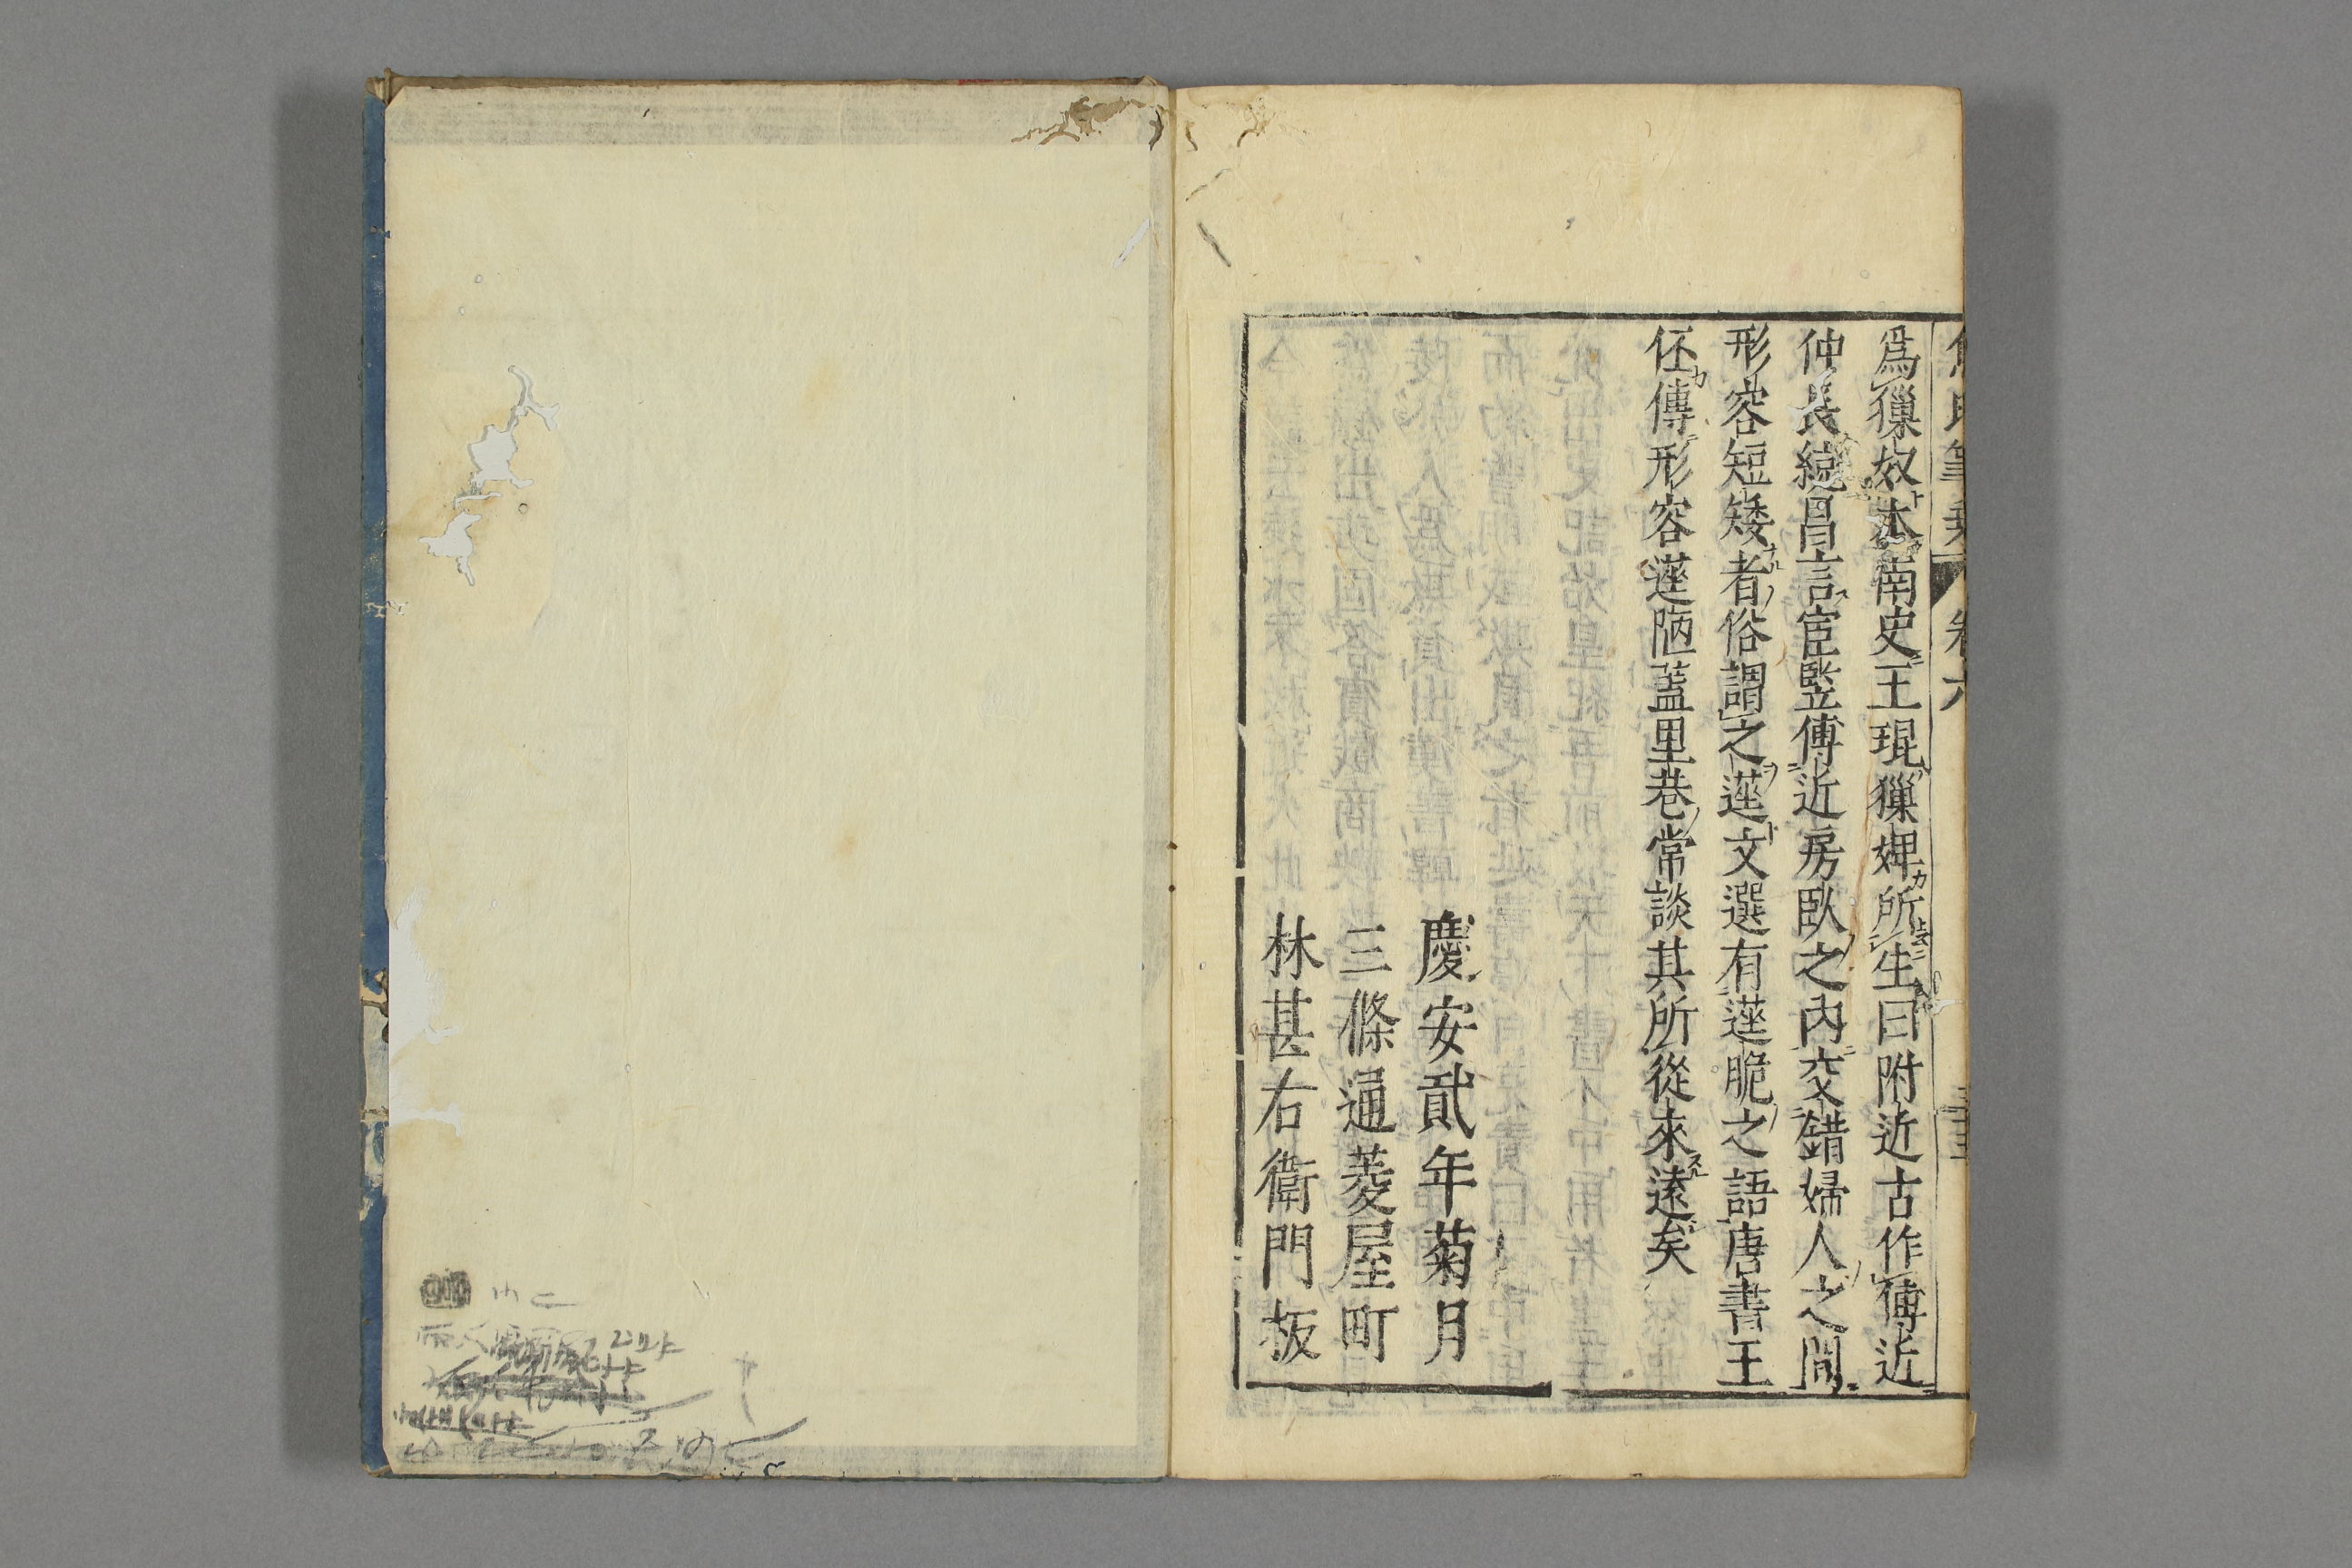 爲獠奴本南史王琨獠婢所生曰附近古作傅近
仲長統昌言宦豎傅近房臥之內交錯婦人之間
形容短矮者俗謂之蓌文選有蓌脆之語唐書王
伾傳形容蓌陋蓋里巷常談其所從來遠矣
慶安貳年菊月
三條通菱屋町
林甚右衛門板